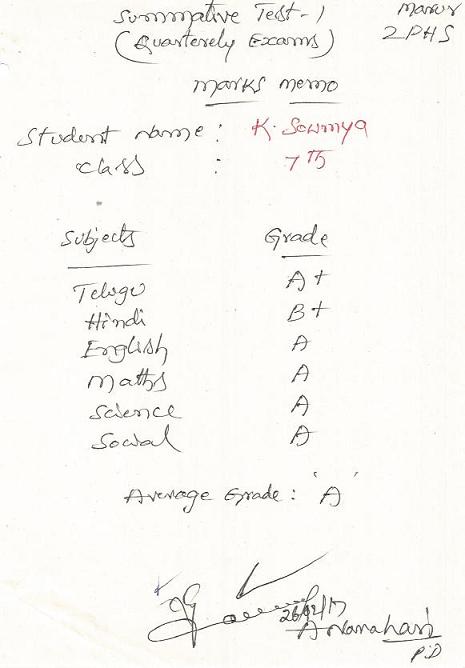 Summative Test-1
(Quarterely Exams)
ZPHS
Marks memo
Student name : K. Sowmya
class : 7th
Subjects Grade
Telugu A+
Hindi B+
English A
maths A
science A
Social A
Average Grade : 'A'
A Narahari
P.D